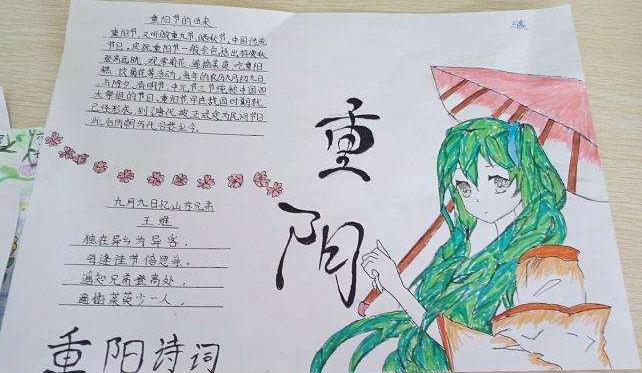 重阳节的由来
重阳节,又叫做重九节、晒秋节,中国传统
节日。庆祝重阳节一般会包括出游赏秋、
登高远眺、观赏菊花、遍插茱萸、吃重阳
糕、饮菊花酒等活动。每年的农历九月初九日
与除夕、清明节、中元节三节统称中国四
大祭祖的节日。重阳节早在战国时期就
已经形成,到了唐代被正式定为民间节日
此后历朝历代沿袭至今。
九月九日忆山东兄弟
王维
独在异乡为异客,
每逢佳节倍思亲。
遥知兄弟登高处,
遍插茱萸少一人。
重阳诗词
重
阳